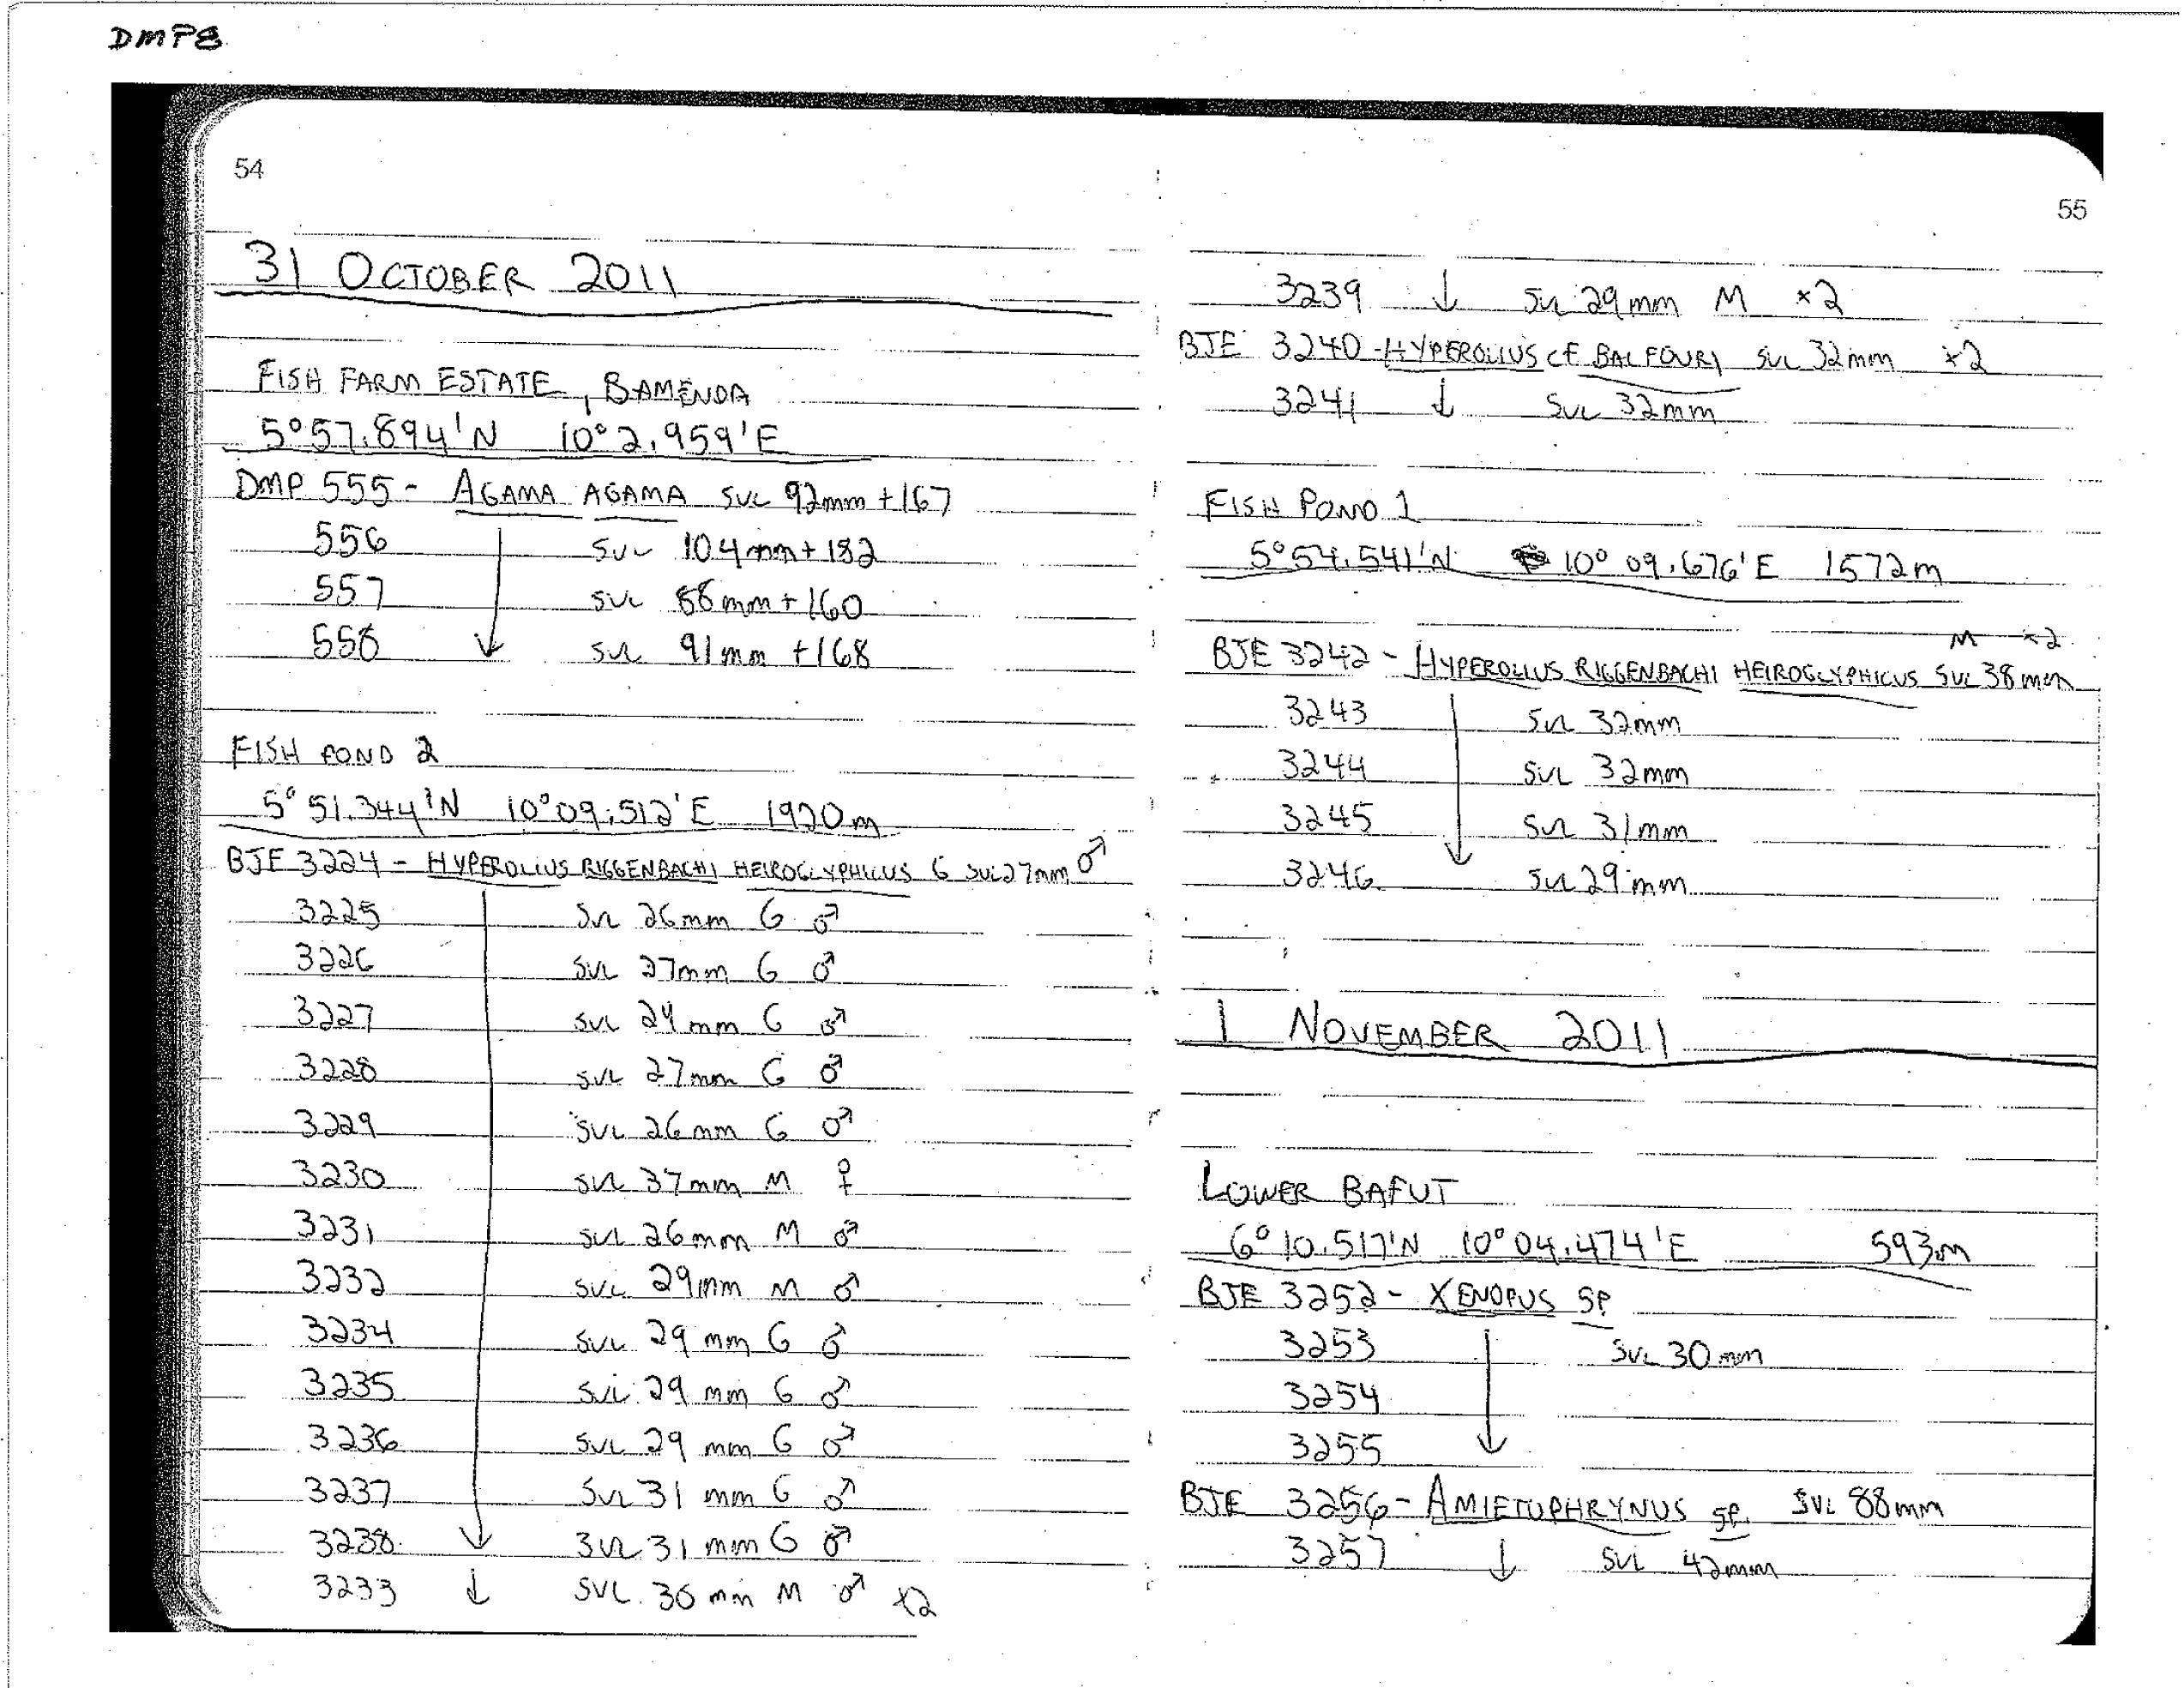 DMP8
54
31 OCTOBER 2011
FISH FARM ESTATE, BAMENDA
5°57.894'N 10°2.959'E
DMP 555 - AGAMA AGAMA SVL 92mm +167
556 SVL 104mm +182
557 SVL 88mm +160
558 SVL 91mm +168
FISH POND 2
5°51.344'N 10°09.512'E 1920m
BJE 3224 - HYPEROLIUS RIGGENBACHI HEIROGLYPHICUS G SVL 27mm ♂
3225 SVL 26mm G ♂
3226 SVL 27mm G ♂
3227 SVL 24mm G ♂
3228 SVL 27mm G ♂
3229 SVL 26mm G ♂
3230 SVL 37mm M ♀
3231 SVL 26mm M ♂
3232 SVL 29mm M ♂
3234 SVL 29mm G ♂
3235 SVL 29mm G ♂
3236 SVL 29mm G ♂
3237 SVL 31mm G ♂
3238 ↓ SVL 31mm G ♂
3233 ↓ SVL 30mm M ♂ x2
55
3239 ↓ SVL 29mm M x2
BJE 3240 - HYPEROLIUS CF BALFOURI SVL 32mm x2
3241 ↓ SVL 32mm
FISH POND 1
5°54.541'N 10°09.676'E 1572m
M x2
BJE 3242 - HYPEROLIUS RIGGENBACHI HEIROGLYPHICUS SVL 38mm
3243 SVL 32mm
3244 SVL 32mm
3245 SVL 31mm
3246 SVL 29mm
1 NOVEMBER 2011
LOWER BAFUT
6°10.517'N 10°04.474'E 593m
BJE 3252 - XENOPUS SP.
3253 SVL 30mm
3254
3255
BJE 3256 - AMIETOPHRYNUS SP. SVL 88mm
3257 ↓ SVL 42mm